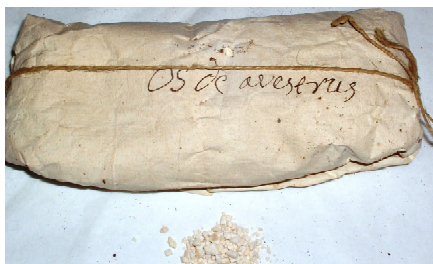 OS de avestrus